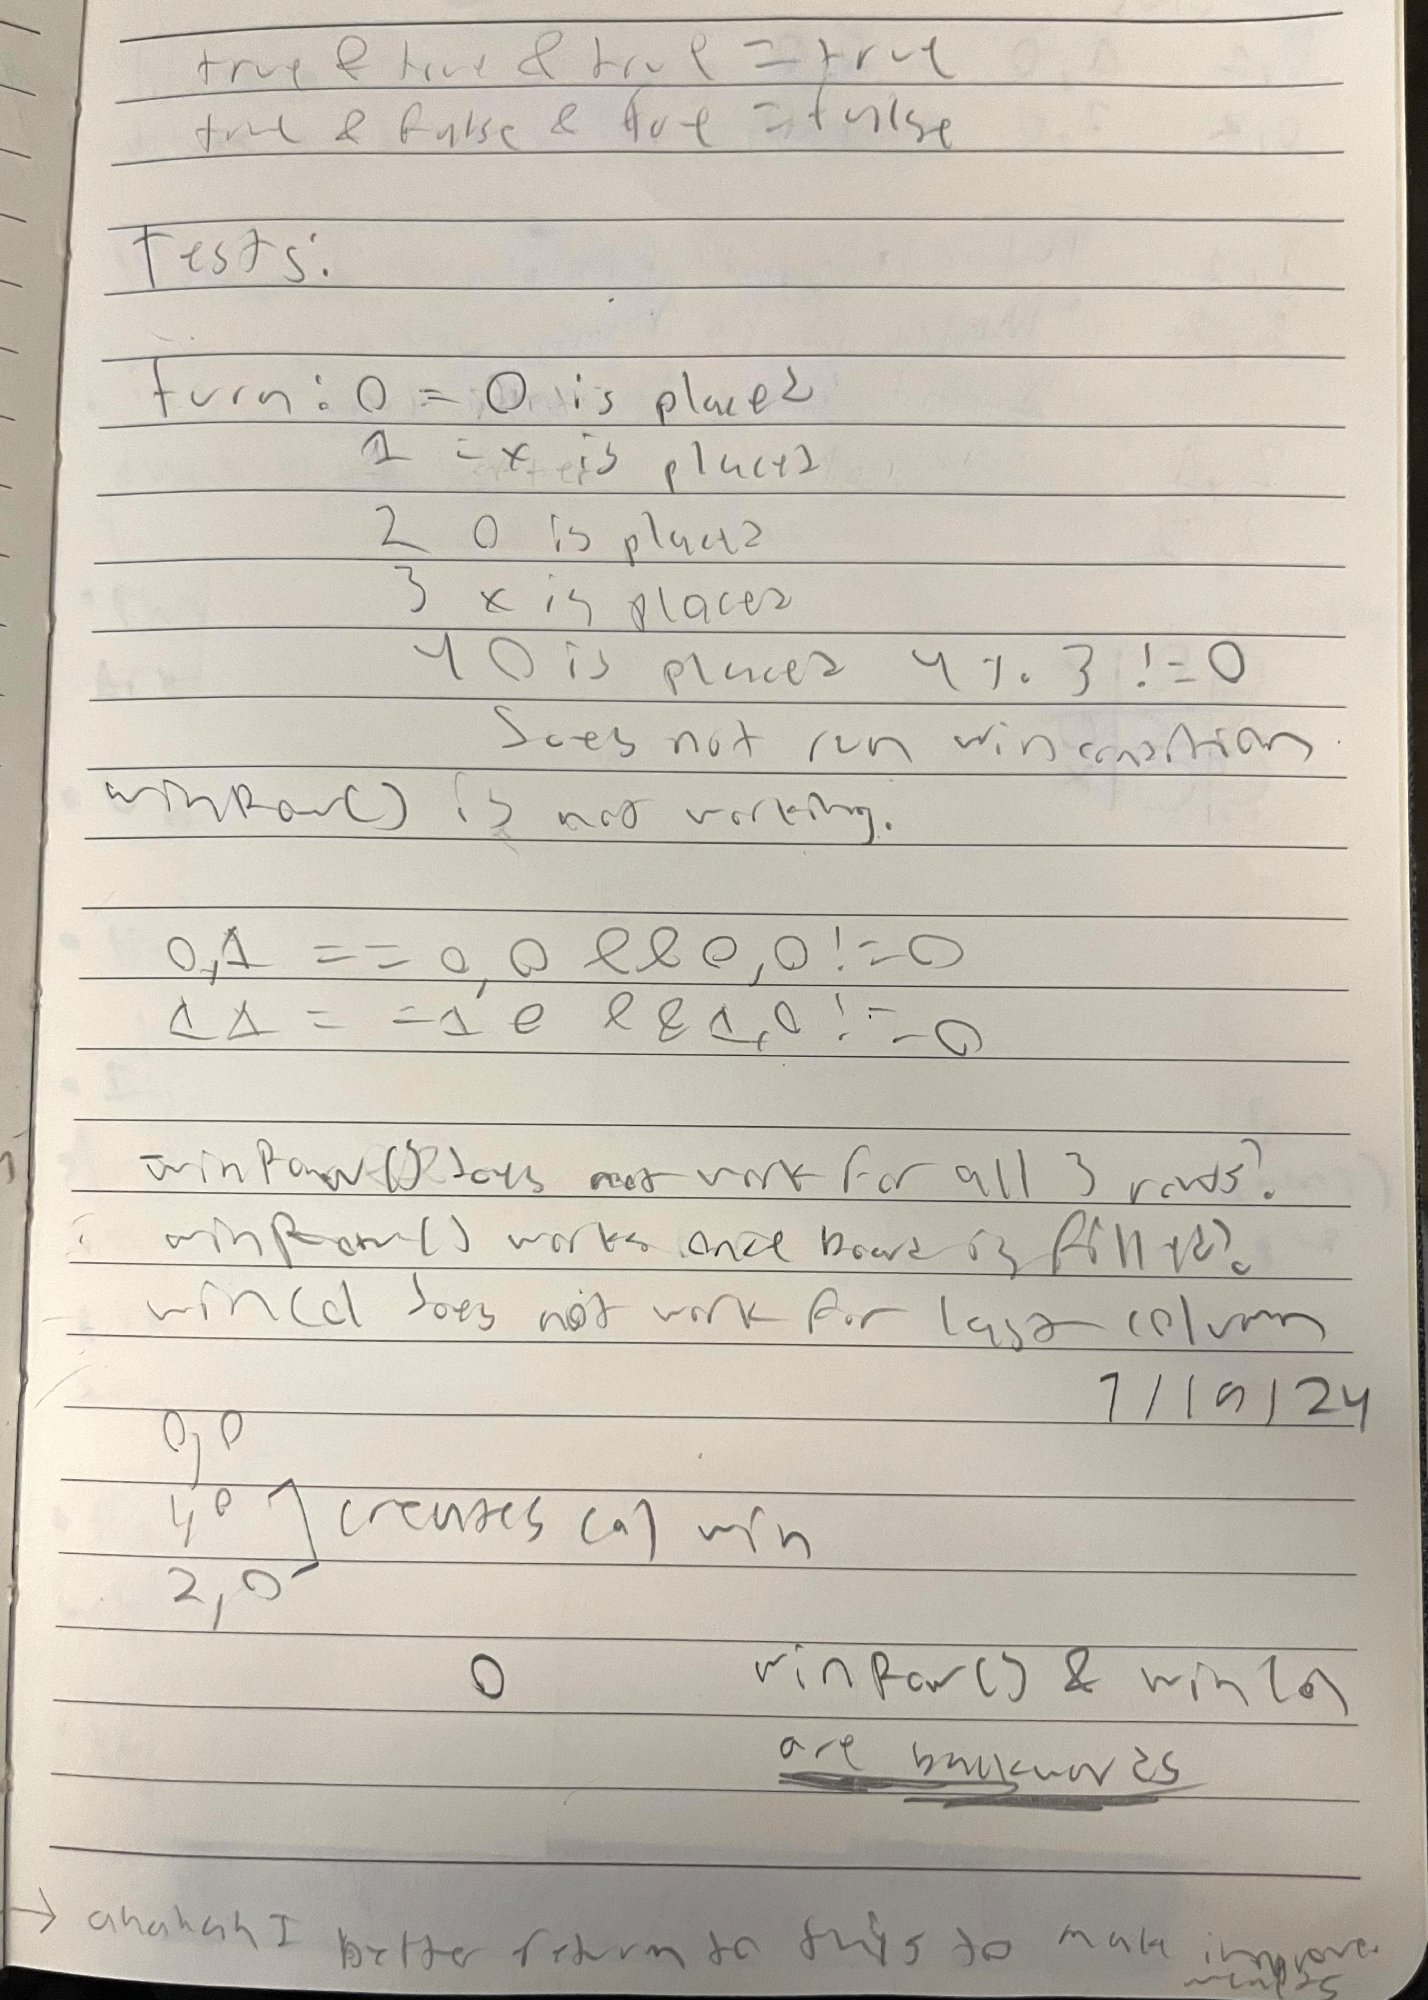 true & true & true = true
true & false & true = false
Tests:
turn: 0 = O is placed
1 = x is placed
2 O is placed
3 x is placed
4 O is placed 4 % 3 != 0
does not run wincondition
winRow() is not working.
0,1 == 0,0 && 0,0 != 0
1 1 == 1 0 && 1,0 != 0
winRow() does not work for all 3 rows?
winRow() works once board is filled?
winCol does not work for last column
7/19/24
0,0
1,0 creates col win
2,0
0 winRow() & winCol
are backwards
→ ahahahah I better return to this to make improve
ments